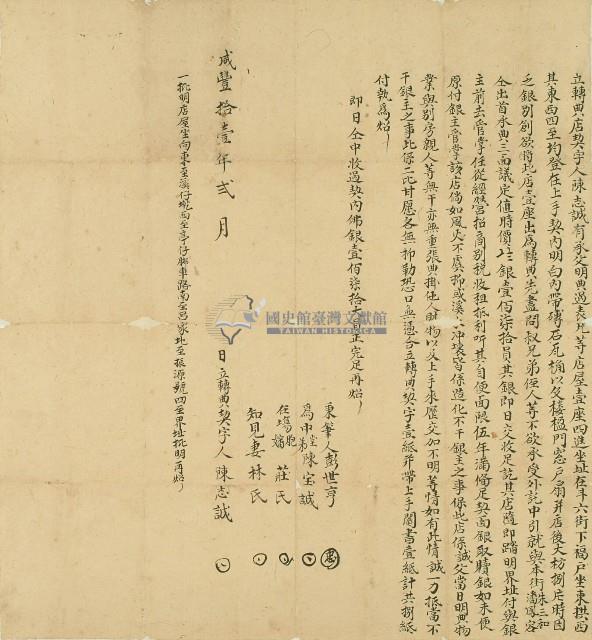 立轉典店契字人陳志誠有承父明典過袁兄等店屋壹座四進坐址在斗六街下福戶坐東拱西
其東西四至均登在上手契內明白內帶磚石瓦桷以及樓楹門窓戶扇并店後大枋捌片時因
乏銀別創欲將此店壹座出為轉典先盡問叔兄弟侄人等不欲承受外託中引就與本街
仝出首承典三面議定值時價銀壹佰柒拾員其銀即日交收足訖其店隨即踏明界址付與銀
主前去管掌任從經營招商別稅收租抵利听其自便面限伍年滿備足契面銀取贖銀如未便
原付銀主管掌該店倘如風火不虞抑或溪水冲壞皆係造化不干銀主之事保此店係誠父當日明典物
業與別房親人等無干亦無重張典掛他人財物以及上手來歷交加不明等情如有此情誠一力抵當不
干銀主之事此係二比甘愿各無抑勒恐口無憑合立轉典契字壹紙并帶上手鬮書壹紙計共捌紙
付執為炤
即日仝中收過契內佛銀壹佰柒拾大員正完足再炤
秉筆人彭世亨
為中堂弟陳宝誠
在塲胞嬸莊氏
知見妻林氏
咸豐拾壹年弍月 日立轉典契字人陳志誠
一批明店屋坐向東至溪仔墘西至亭仔腳車路南至呂家地至振源號四至界址批明再炤
國史館臺灣文獻館
TAIWAN HISTORICA